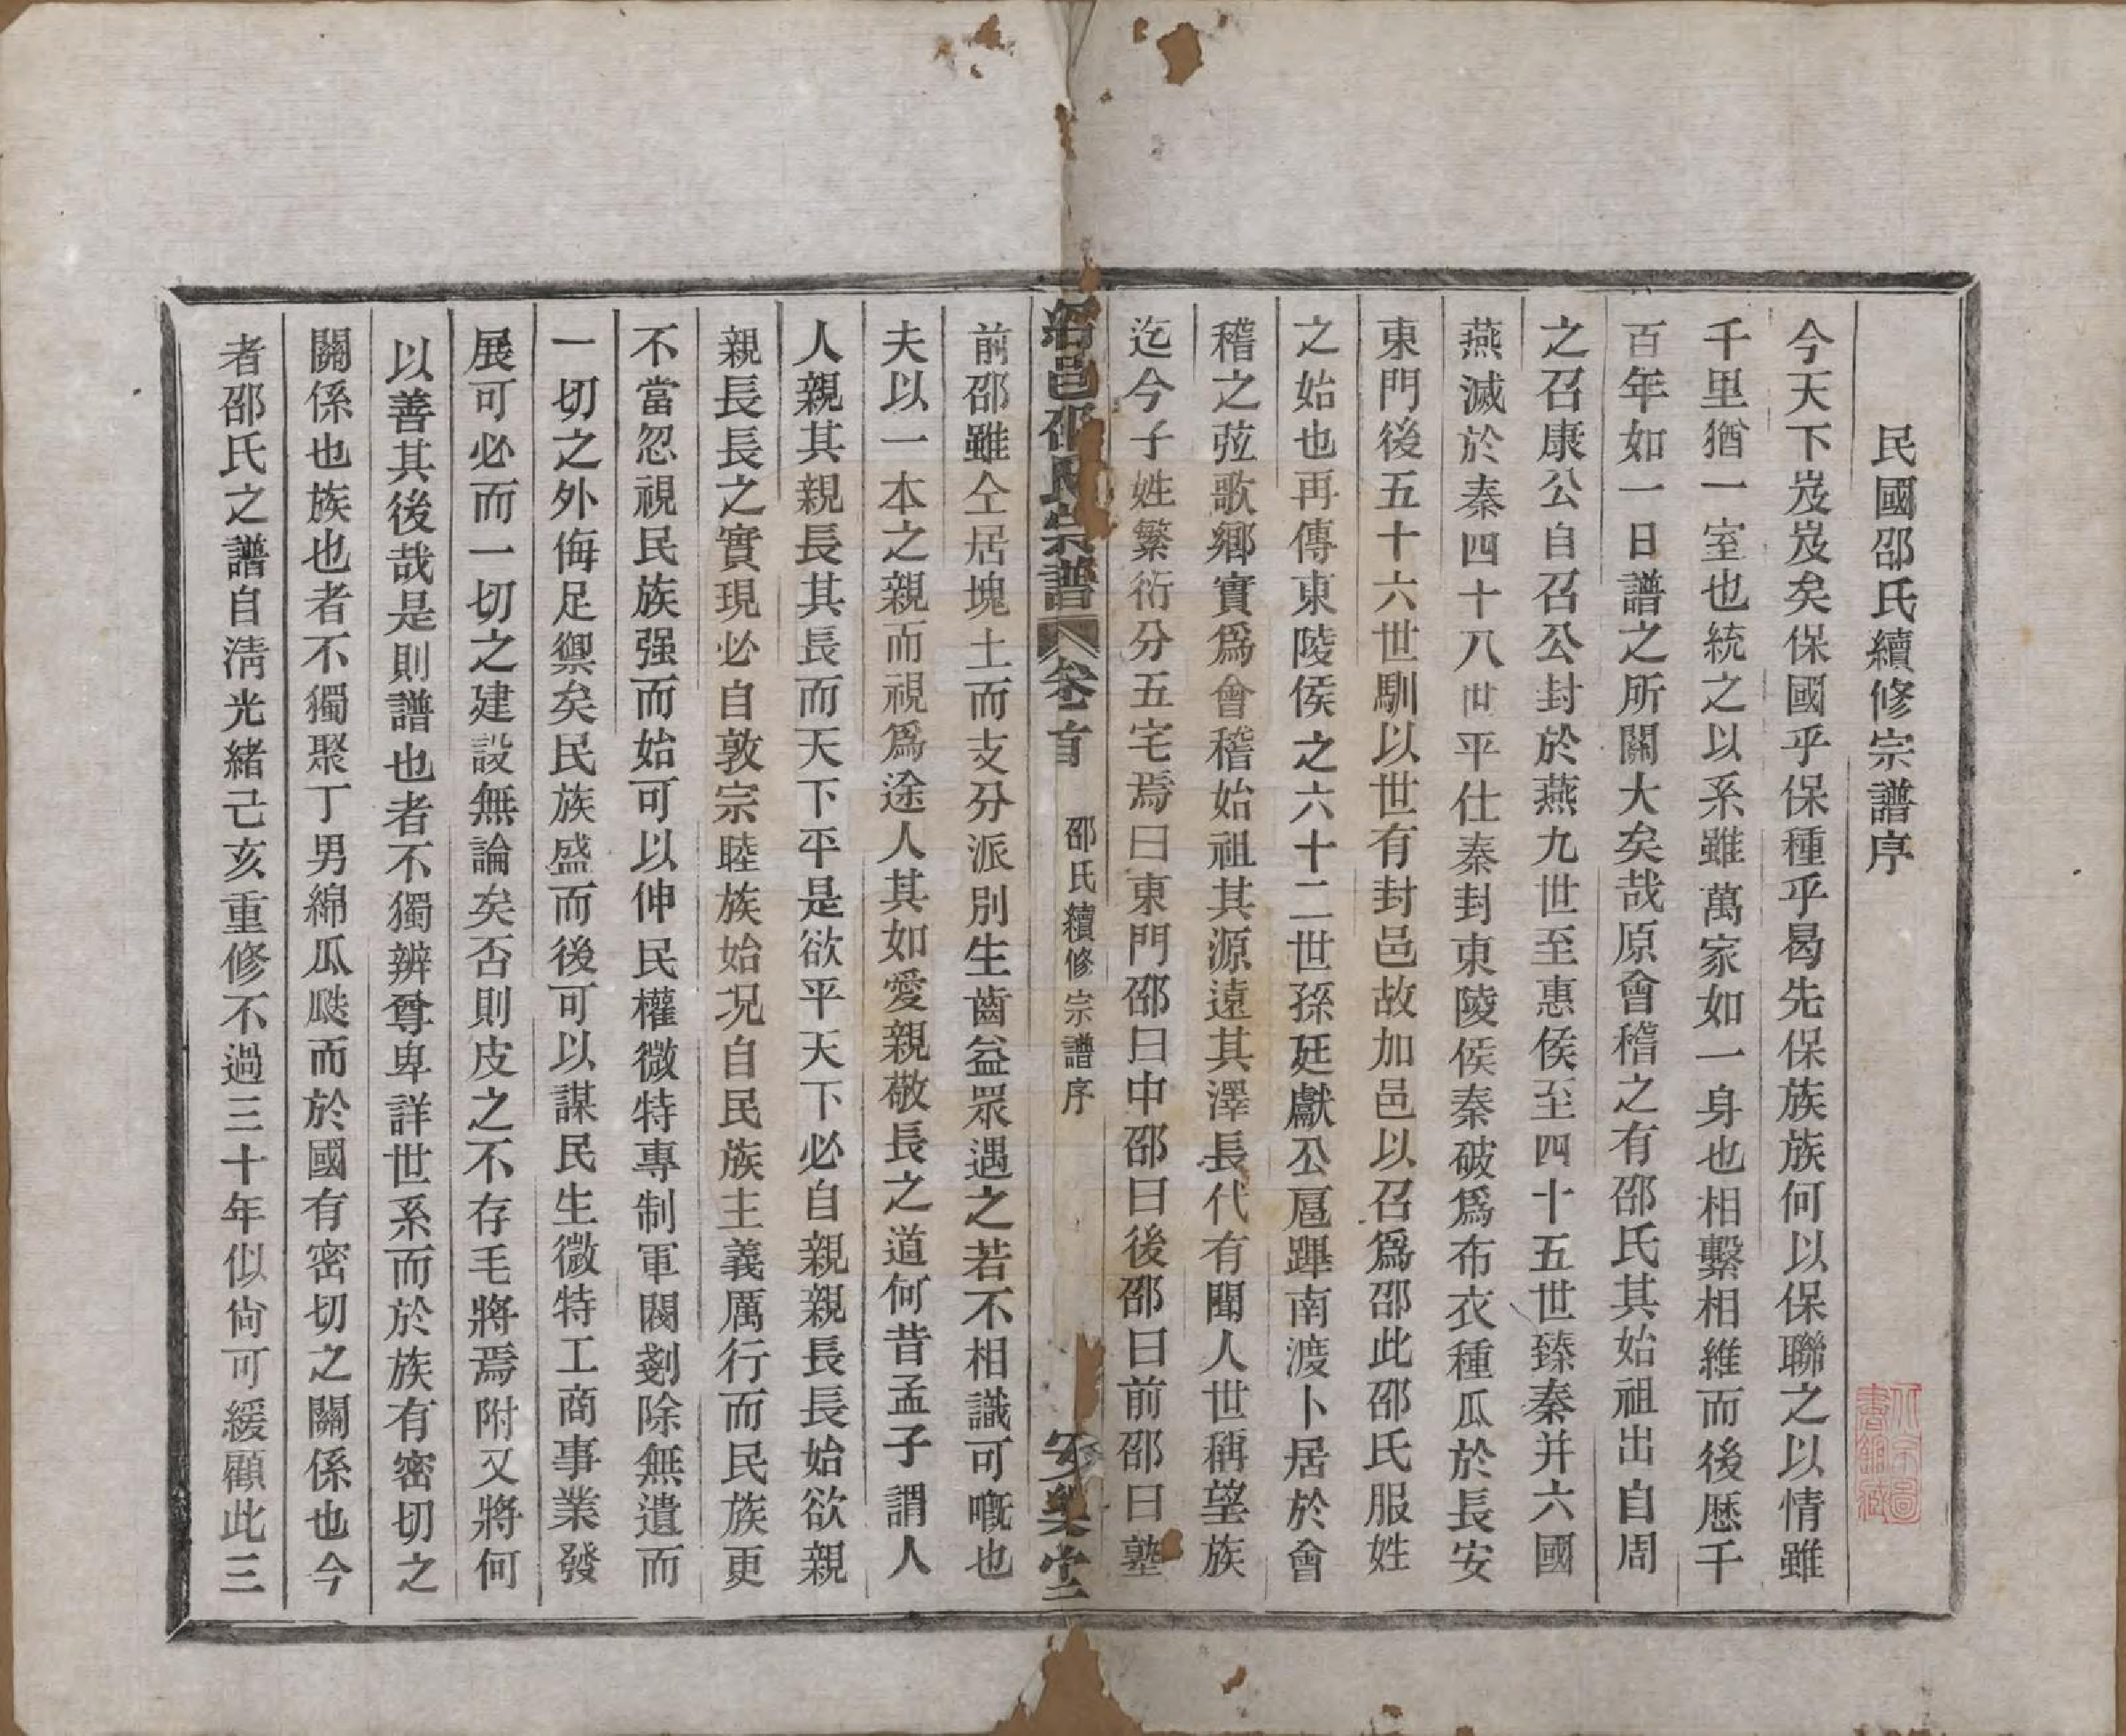 民國邵氏續修宗譜序
今天下岌岌矣保國乎保種乎曷先保族族何以保聯之以情雖
千里猶一室也統之以系雖萬家如一身也相繫相維而後歷千
百年如一日譜之所關大矣哉原會稽之有邵氏其始祖出自周
之召康公自召公封於燕九世至惠侯至四十五世臻秦并六國
燕滅於秦四十八世平仕秦封東陵侯秦破爲布衣種瓜於長安
東門後五十六世馴以世有封邑故加邑以召爲邵此邵氏服姓
之始也再傳東陵侯之六十二世孫廷獻公扈蹕南渡卜居於會
稽之弦歌鄉實爲會稽始祖其源遠其澤長代有聞人世稱望族
迄今子姓繁衍分五宅焉曰東門邵曰中邵曰後邵曰前邵曰塾
紹邑邵氏宗譜 卷首 邵氏續修宗譜序 安樂堂
前邵雖仝居塊土而支分派別生齒益眾遇之若不相識可嘅也
夫以一本之親而視爲途人其如愛親敬長之道何昔孟子謂人
人親其親長其長而天下平是欲平天下必自親親長長始欲親
親長長之實現必自敦宗睦族始况自民族主義厲行而民族更
不當忽視民族强而始可以伸民權微特專制軍閥剗除無遺而
一切之外侮足禦矣民族盛而後可以謀民生微特工商事業發
展可必而一切之建設無論矣否則皮之不存毛將焉附又將何
以善其後哉是則譜也者不獨辨尊卑詳世系而於族有密切之
關係也族也者不獨聚丁男綿瓜瓞而於國有密切之關係也今
者邵氏之譜自淸光緒己亥重修不過三十年似尙可緩顧此三